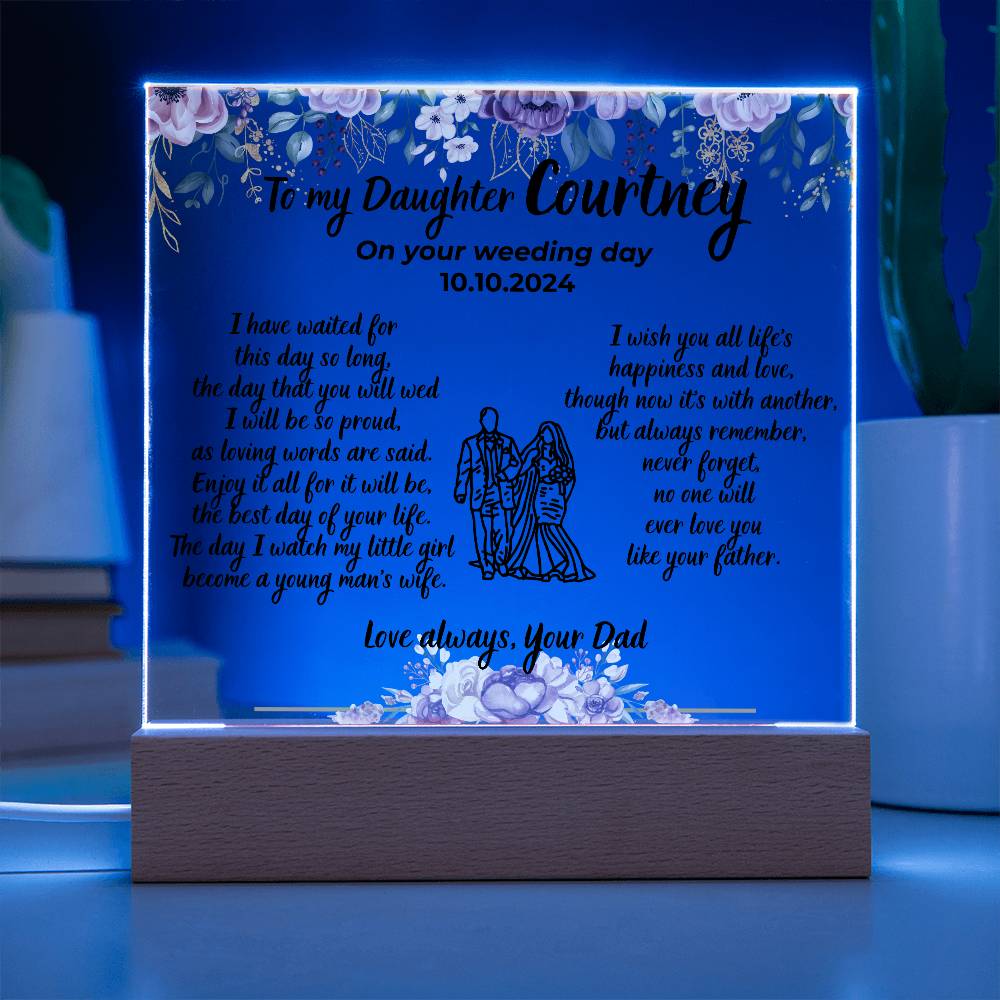 To my Daughter Courtney
On your weeding day
10.10.2024
I have waited for
this day so long,
the day that you will wed
I will be so proud,
as loving words are said.
Enjoy it all for it will be,
the best day of your life.
The day I watch my little girl
become a young man's wife.
I wish you all life's
happiness and love,
though now it's with another,
but always remember,
never forget,
no one will
ever love you
like your father.
Love always, Your Dad